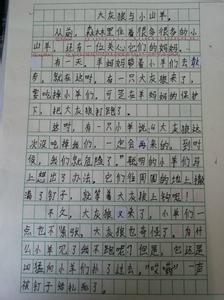 大灰狼与小山羊
从前，森林里住着很多很多的小
山羊，还有一位关心它们的妈妈。
有一天，羊妈妈带着小羊们去散
步，就在这时，有一只大灰狼来了，
要吃掉小羊们，可是在羊妈妈的保护
下，把大灰狼打跑了。
这时，有一只小羊说：“大灰狼这
次没吃掉我们，一定会再来的，到时
候，我们就危险了。”聪明的小羊们马
上想出了办法，它们在周围的地上撒
满了钉子，就等着大灰狼上钩啦！
不久，大灰狼又来了，小羊们一
点也不紧张。大灰狼也奇怪了，为什
么小羊见了我不跑呢？但是，它还是
凶猛向小羊们扑了过去，“哎哟”一声
被钉子给扎死了。